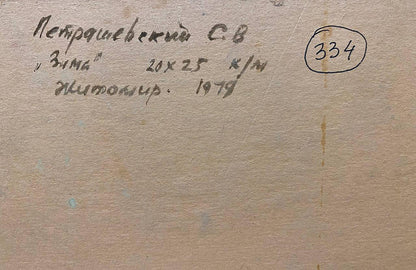 Петрашевский С.В
"Зима" 20x25 к/м
Житомир. 1979
334